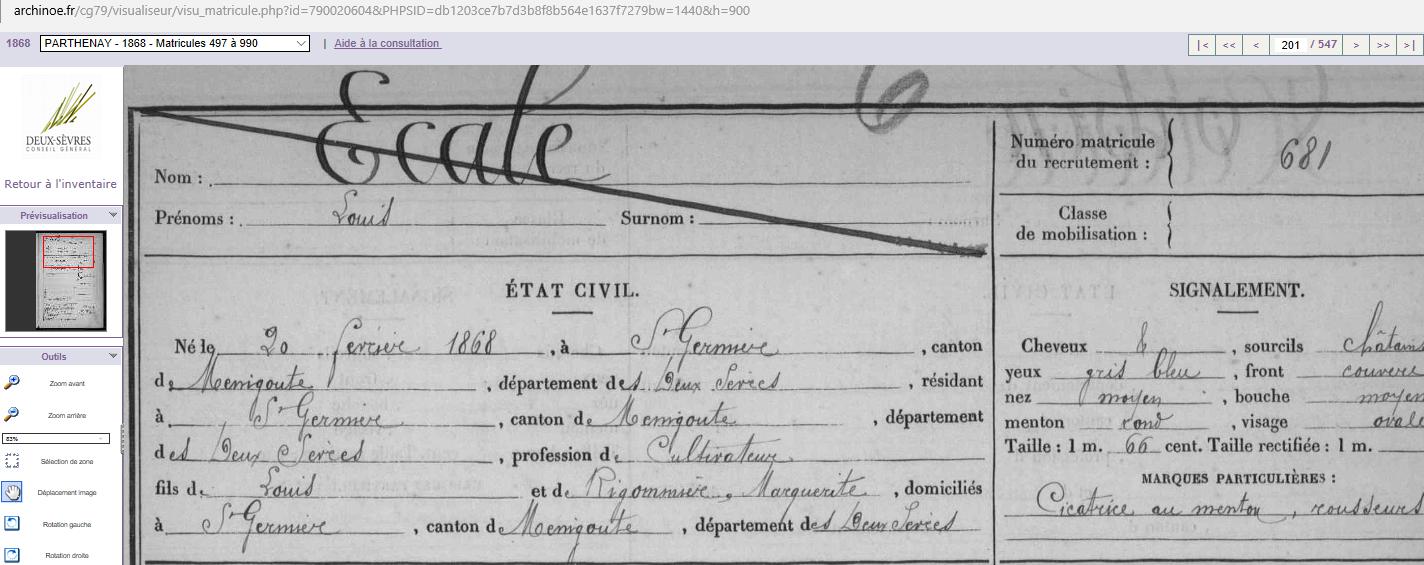 archinoe.fr/cg79/visualiseur/visu_matricule.php?id=790020604&PHPSID=db1203ce7b7d3b8f8b564e1637f7279bw=1440&h=900
1868 PARTHENAY - 1868 - Matricules 497 à 990 | Aide à la consultation |< << < 201 / 547 > >> >|
DEUX-SÈVRES
CONSEIL GÉNÉRAL
Retour à l'inventaire
Prévisualisation
Outils
Zoom avant
Zoom arrière
83%
Sélection de zone
Déplacement image
Rotation gauche
Rotation droite
6
Nom : Ecale
Prénoms : Louis Surnom :
Numéro matricule
du recrutement : 681
Classe
de mobilisation :
ÉTAT CIVIL.
Né le 20 fevrier 1868, à St Germier, canton
de Menigoute, département des Deux Sevres, résidant
à St Germier, canton de Menigoute, département
des Deux Sevres, profession de Cultivateur
fils de Louis et de Marguerite, domiciliés
à St Germier, canton de Menigoute, département des Deux Sevres
SIGNALEMENT.
Cheveux &, sourcils châtains
yeux gris bleu, front couvert
nez moyen, bouche moyen
menton rond, visage ovale
Taille : 1 m. 66 cent. Taille rectifiée : 1 m.
MARQUES PARTICULIÈRES :
Cicatrice au menton, rousseurs